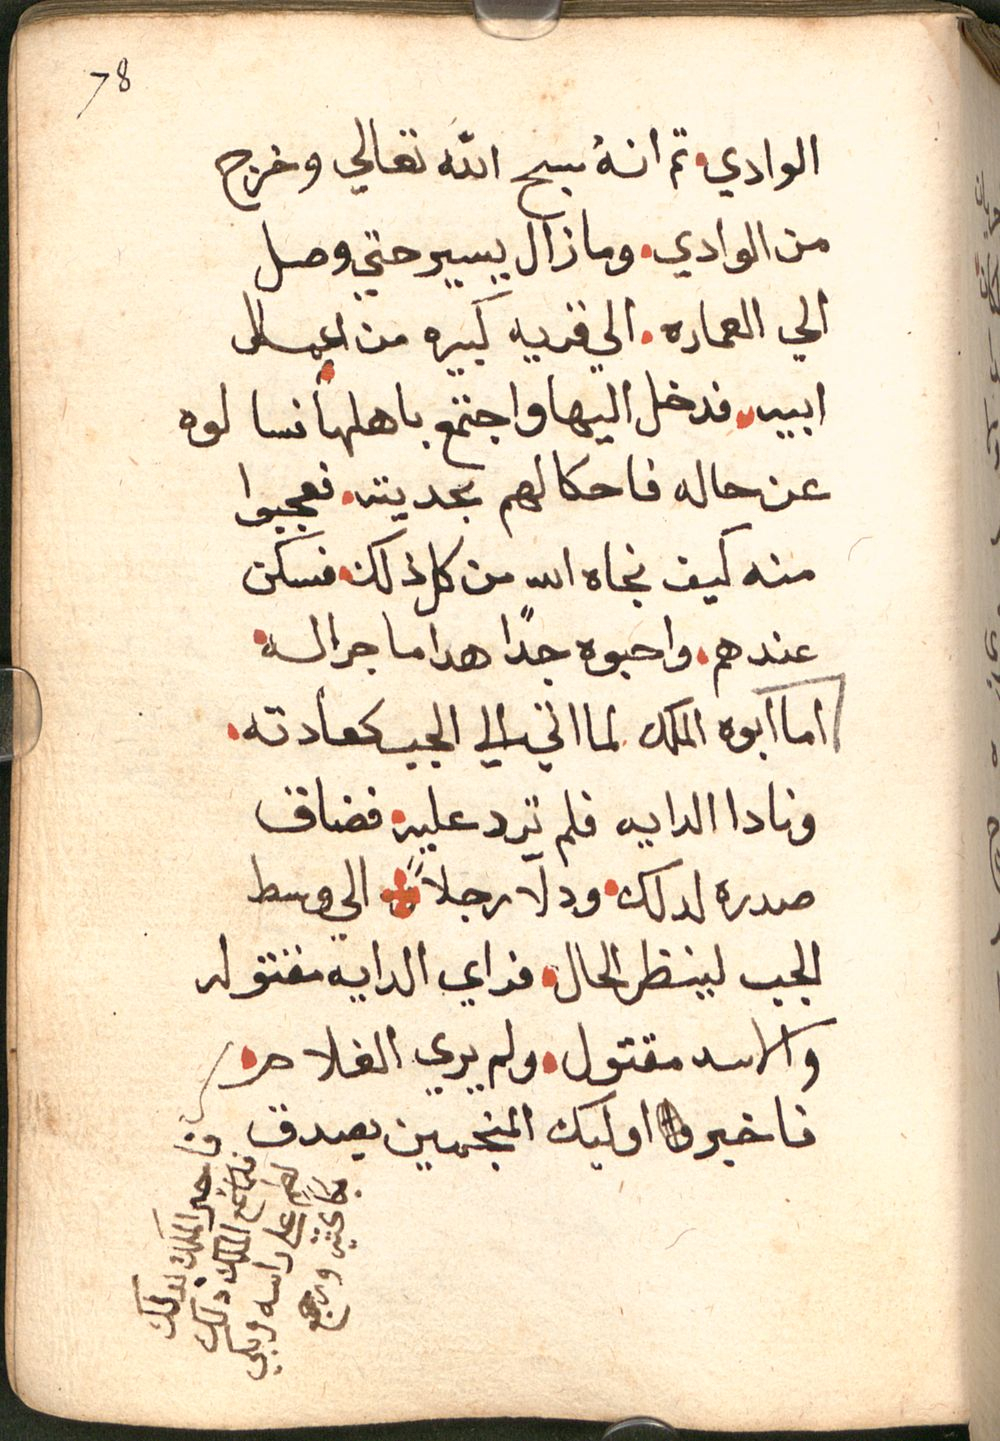 78
الوادي. تم انهُ سبح اللّه تعالي وخرج
من الوادي. وما زال يسير حتي وصل
الي العماره. الي قريه كبيره من اعمال
ابيه. فدخل اليها واجتمع باهلها فسالوه
عن حاله فاحكالهم بحديته. فعجبوا
منه كيف نجاه الله من كل ذلك. فسكن
عندهم. واحبوه جدًا هدا ما جرا له.
اما ابوه الملك لما اتي الي الجب كعادته.
ونادا الدايه فلم ترد عليه. فضاق
صدره لدلك. ودلا رجلاً الي وسط
الجب لينظر الحال. فراي الدايه مقتوله
والاسد مقتول. ولم يري الغلام.
فاخبر اوليك المنجمين بصدق
فاخبر الملك بدلك
فلما سمع الملك دلك
لطم علي راسه وبكي
بكا كثير ورجع